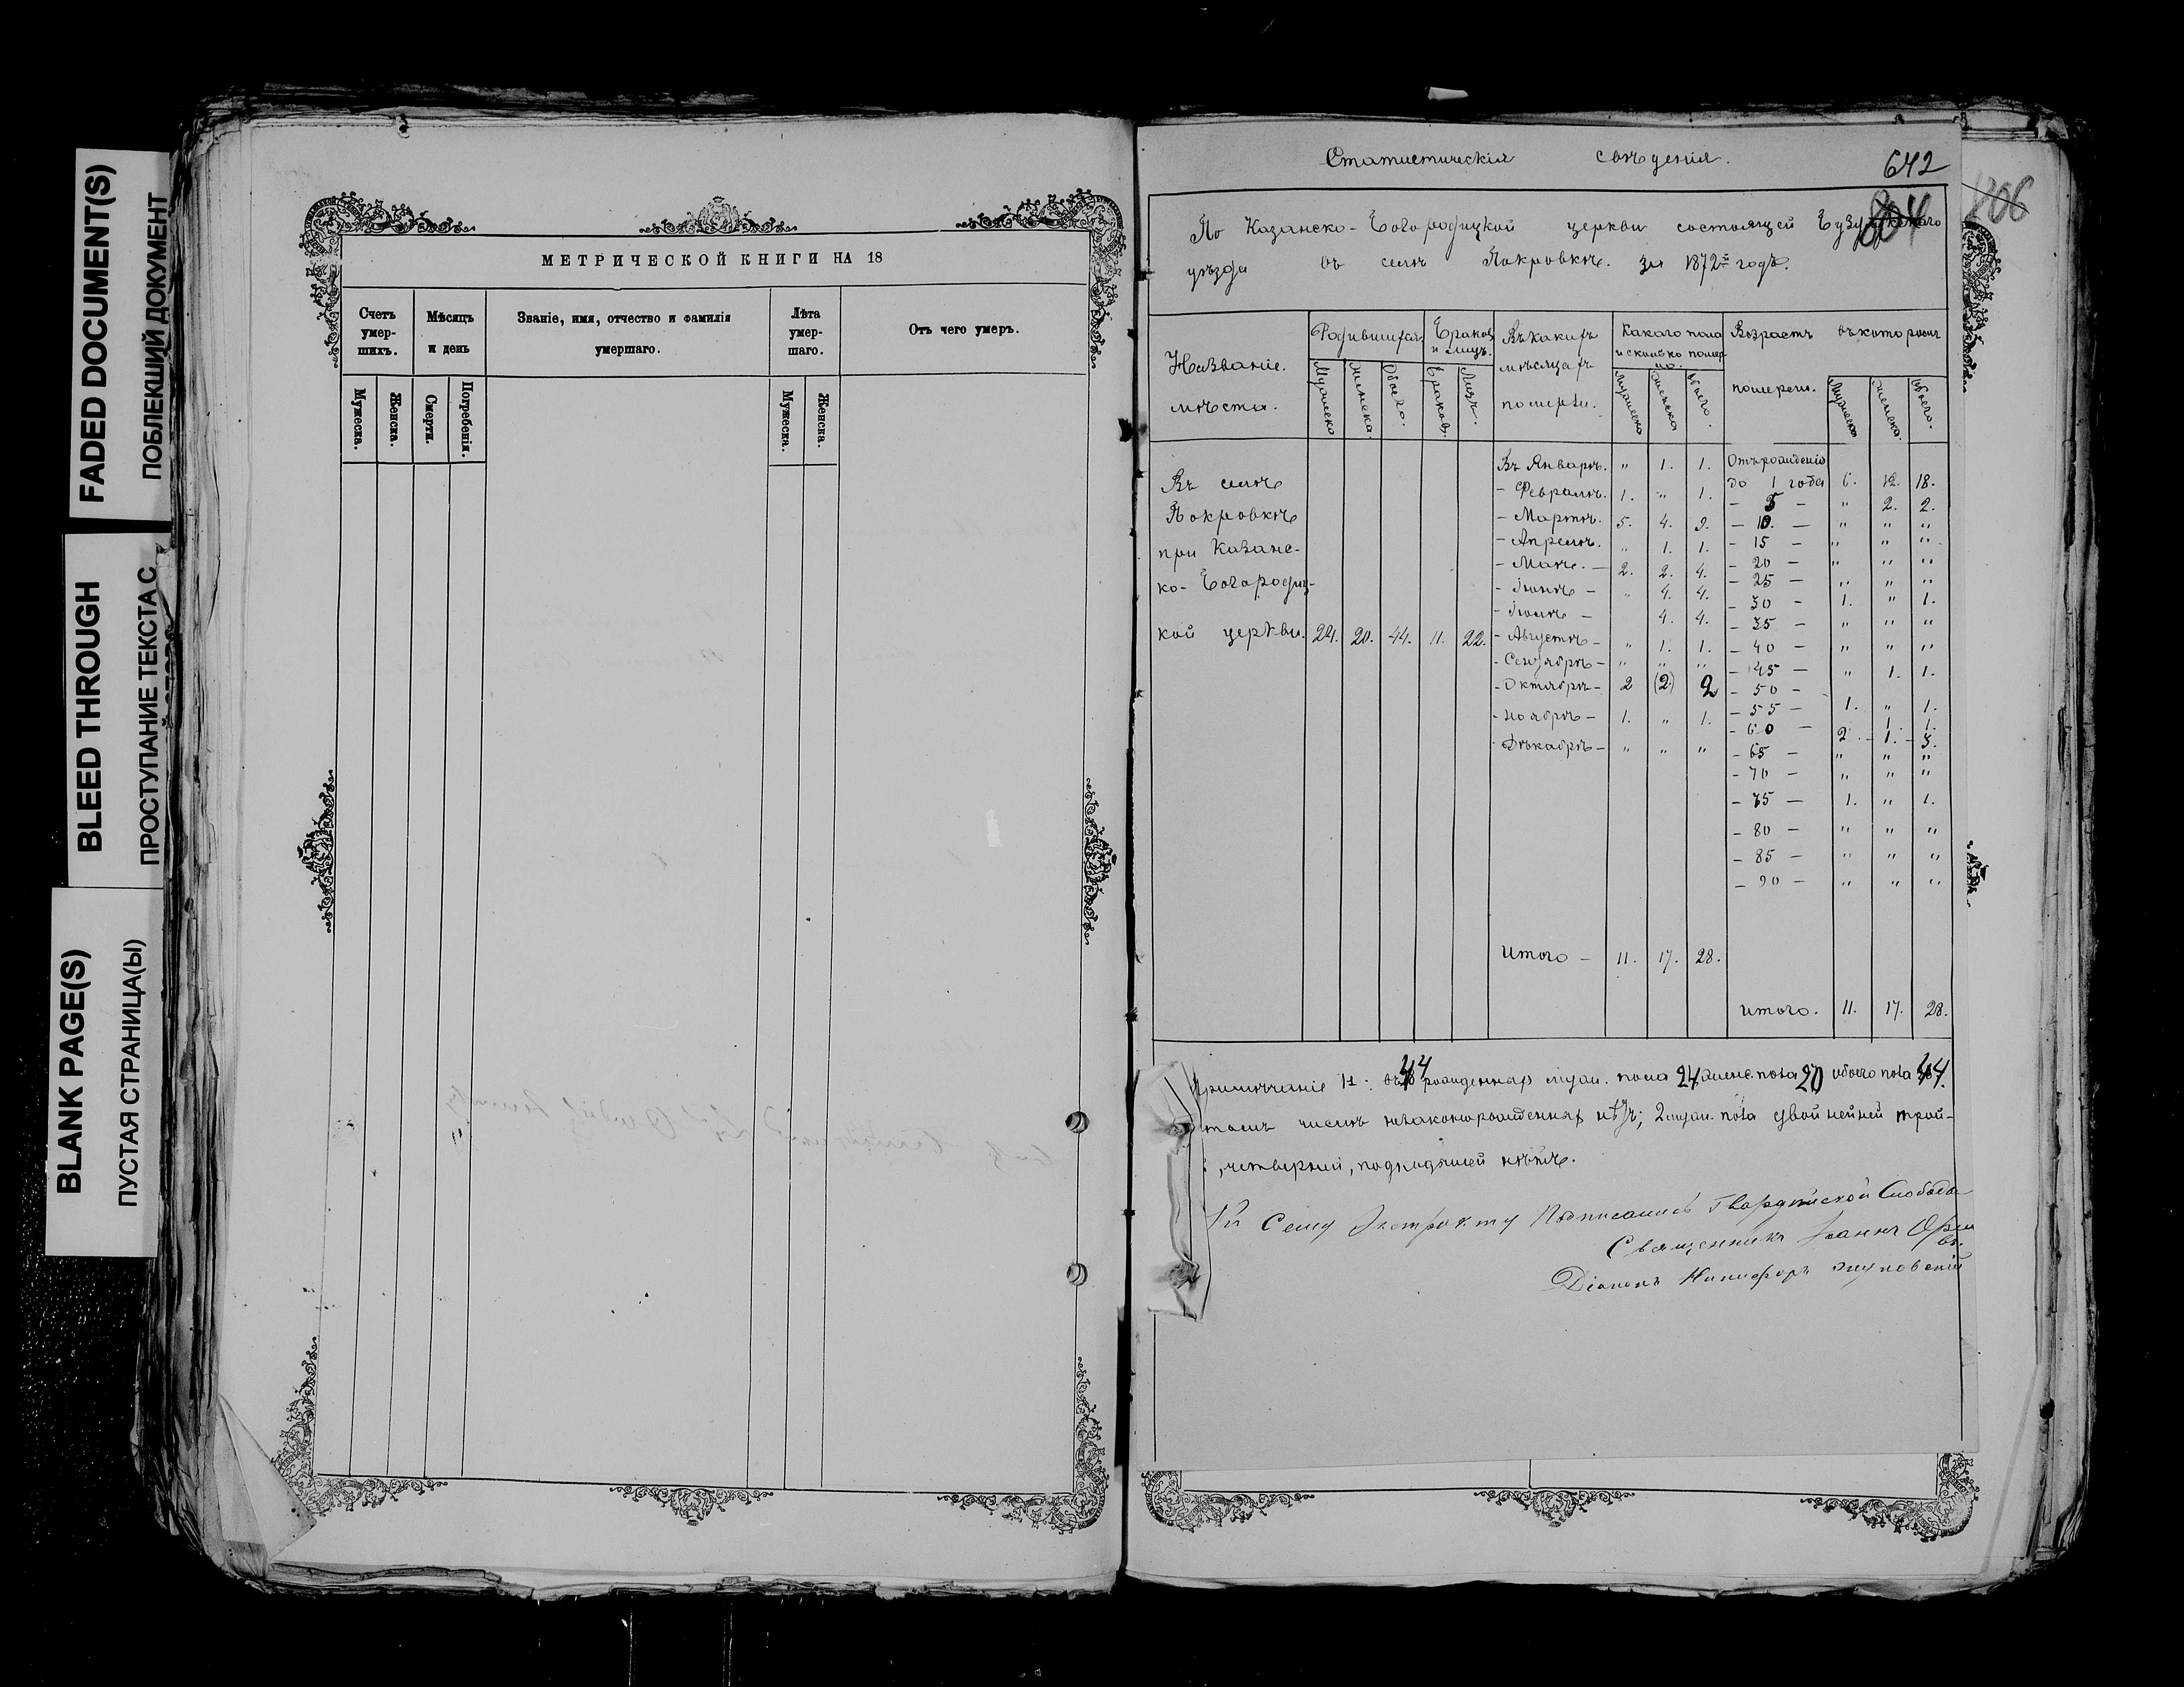 FADED DOCUMENT(S)
ПОБЛЕКШИЙ ДОКУМЕНТ
BLEED THROUGH
ПРОСТУПАНИЕ ТЕКСТА С
BLANK PAGE(S)
ПУСТАЯ СТРАНИЦА(Ы)
МЕТРИЧЕСКОЙ КНИГИ НА 18
Счетъ умер-шихъ.
Мѣсяцъ и день
Званіе, имя, отчество и фамилія умершаго.
Лѣта умер-шаго.
Отъ чего умеръ.
Мужеска.
Женска.
Смерти.
Погребенія.
Мужеска.
Женска.
Статистическія свѣденія.
642
По Казанско-Богородицкой церкви состоящей
уѣзда въ селѣ Покровкѣ. за 1872й годъ.
Названіе мѣста.
Родившихся
Мужеска
Женска.
Обоего.
Браковъ и лицъ.
Браковъ.
Лицъ.
Въ какихъ мѣсяцахъ померли.
Какого пола и сколько померло.
Мужеска
Женска
Обоего.
Возрастъ въ которомъ померли.
Мужеска
Женска.
Обоего.
Въ селѣ
Покровкѣ
при Казанс-
ко-Богородиц-
кой церкви. 24. 20. 44. 11. 22.
Въ Январѣ. " 1. 1.
- Февралѣ. 1. " 1.
- Мартѣ. 5. 4. 9.
- Апрелѣ. " 1. 1.
- Маѣ. - 2. 2. 4.
- Іюнѣ - " 4. 4.
- Іюлѣ - 4. 4.
- Августѣ - " 1. 1.
- Сентябрѣ - " " "
- Октябрѣ - 2 (2) 2
- Ноябрѣ - 1. " 1.
- Дѣкабрѣ - " " "
Итого - 11. 17. 28.
Отъ рожденія
до 1 года 6. 12. 18.
- 5 - " 2. 2.
- 10. - " " "
- 15 - " " "
- 20 - " " "
- 25 - " " "
- 30 - 1. " 1.
- 35 - " " "
- 40 - " " "
- 45 - " 1. 1.
- 50 -
- 55 - 1. " 1.
- 60 - 1. 1.
2. - 1. - 3.
- 65 - " " "
- 70 - " " "
- 75 - 1. " 1.
- 80 - " " "
- 85 - " " "
- 90 - " " "
Итого. 11. 17. 28.
рожденныхъ муж. пола 24, женс. пола 20 обоего пола 44.
томъ числѣ незаконорожденныхъ нѣтъ; 2 муж. пола двойней трой-
, четверней, подкидышей нѣтъ.
Къ Сему Экстракту Подписались Гвардейской Слободы
Священникъ Іоаннъ
Діаконъ Никифоръ